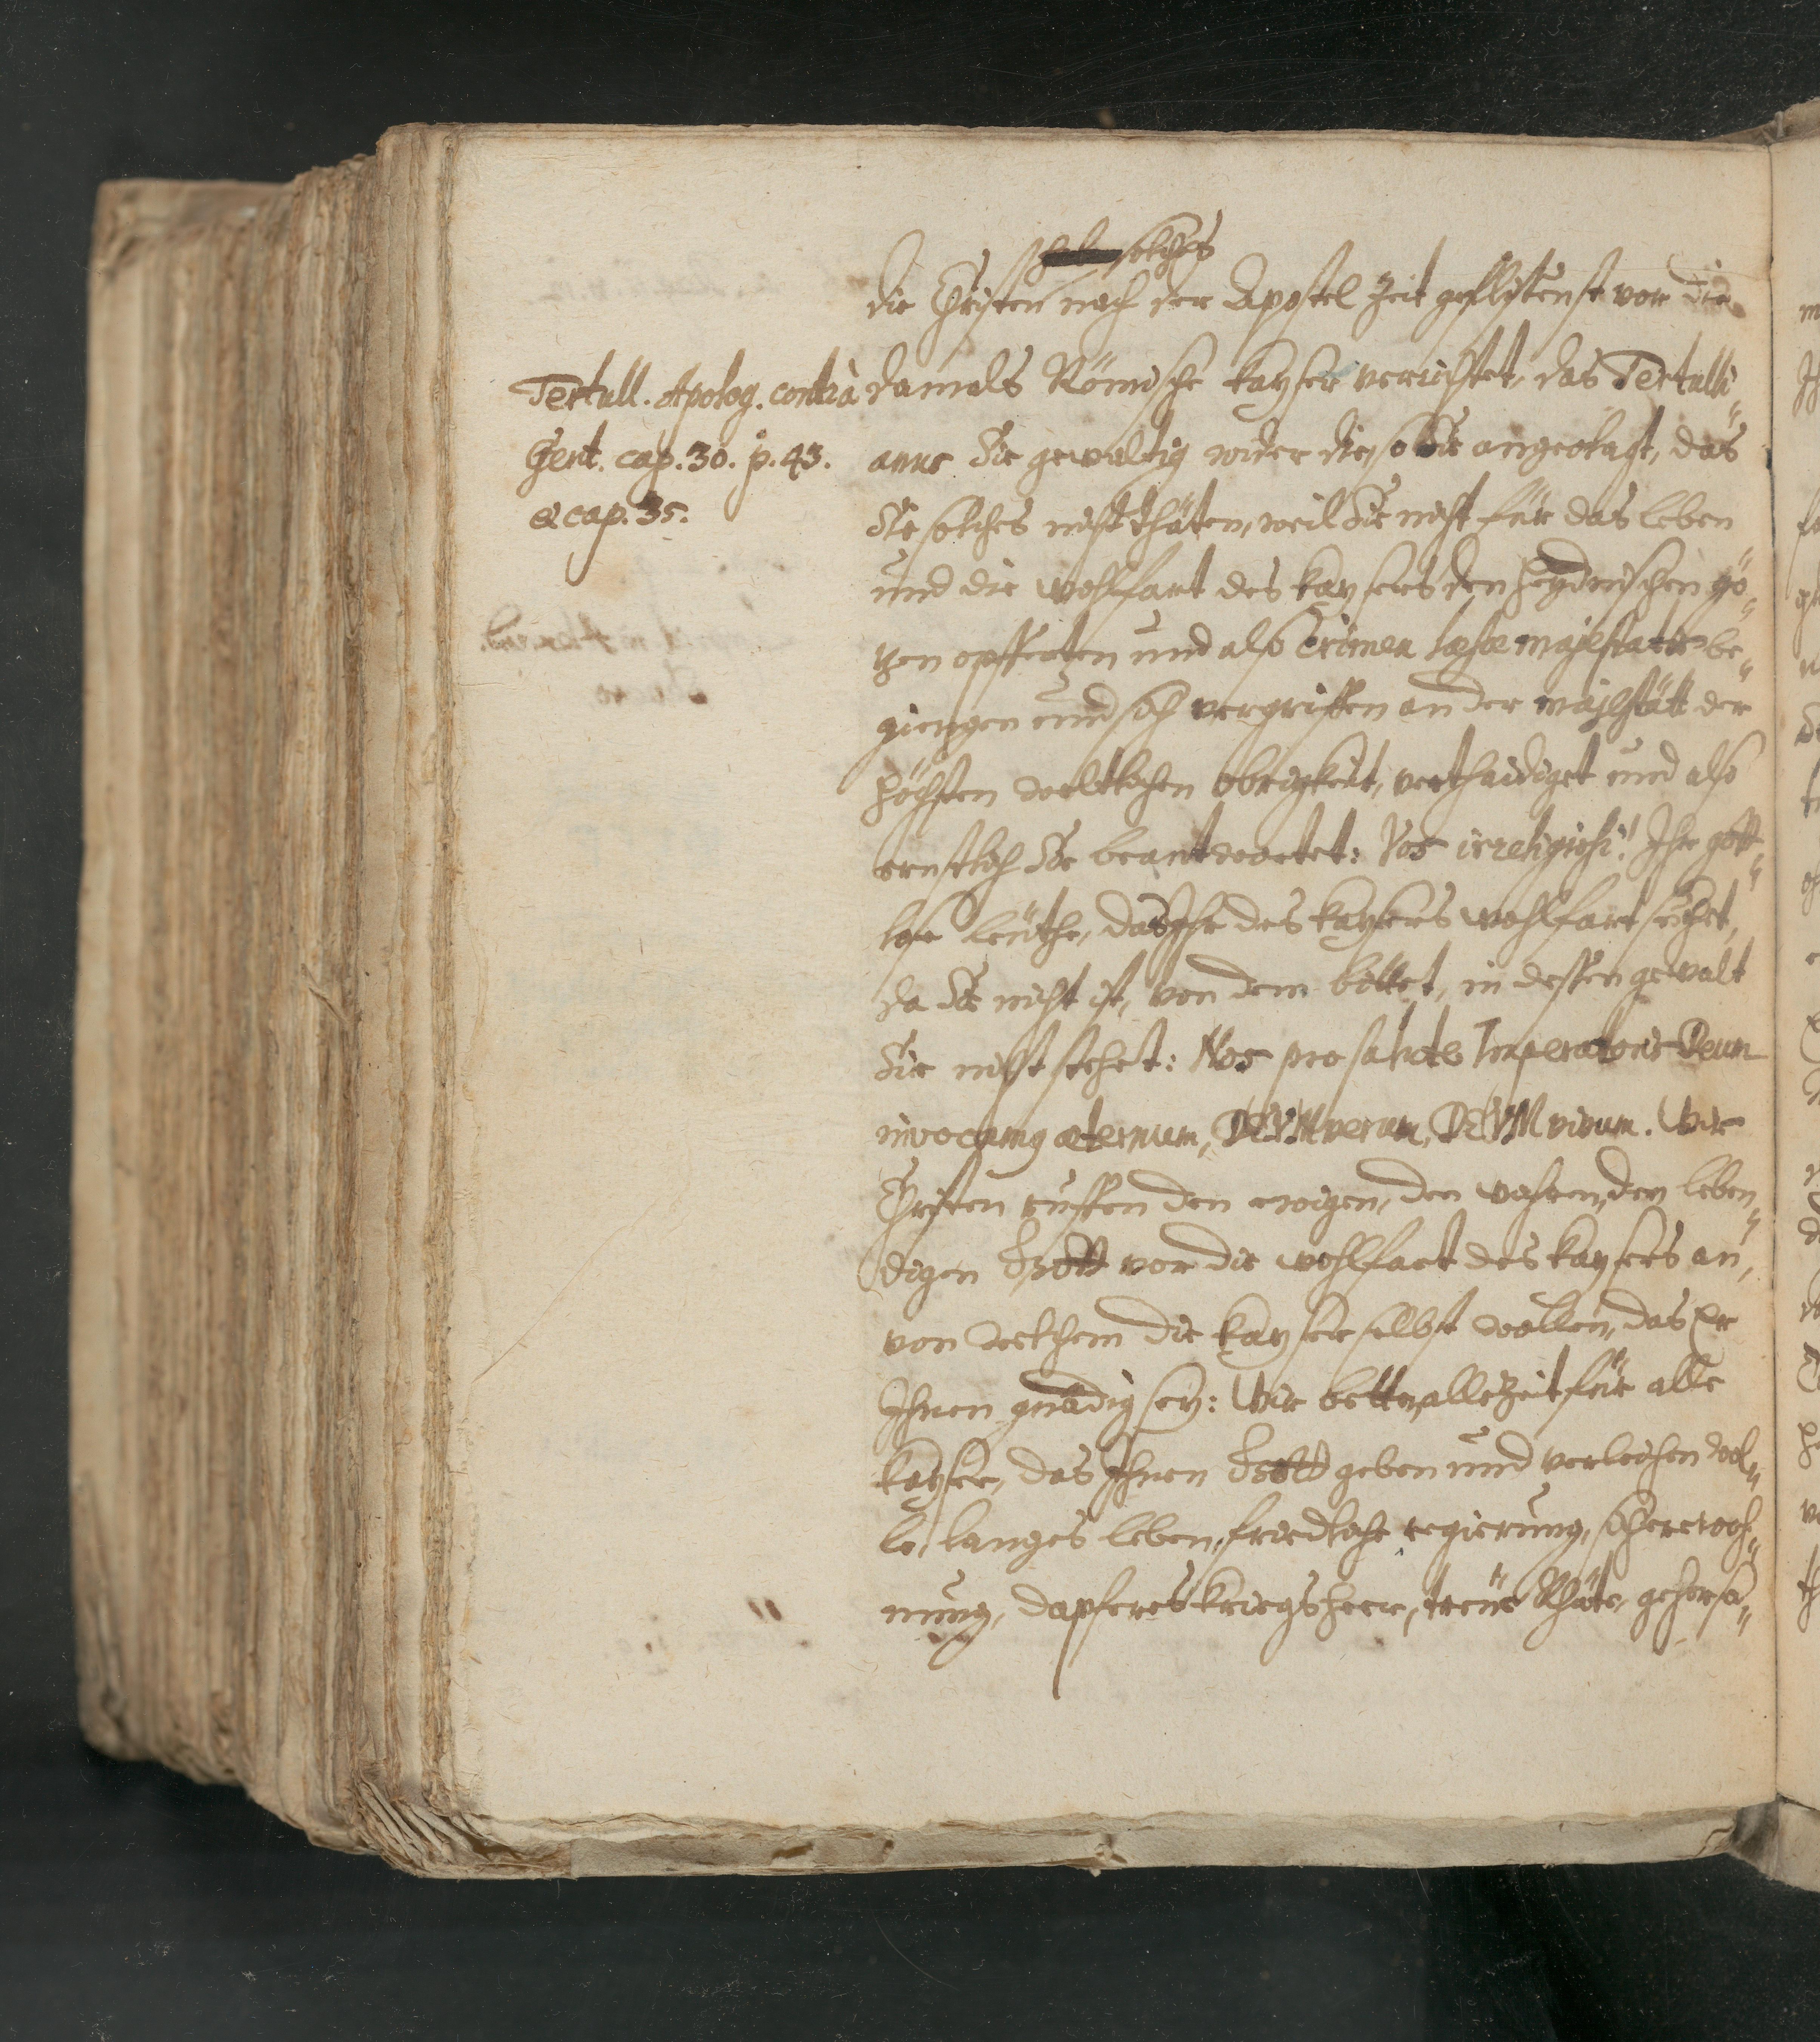 solches
die Christen nach der Apostel Zeit geflissenst vor die
Tertull. Apolog. contrà
Gent. cap. 30. p. 43.
& cap. 35.
damals Römische Kayser verrichtet, das Tertulli„
anus Sie gewaltig wider die, so Sie angeclagt, das
Sie solches nicht thäten, weil Sie nicht für das leben
und die wohlfart des Kaysers den heydnischen gö„
tzen opfferten und also Crimen læsæ majestatis be„
giengen und sich vergriffen an der majestätt der
höchsten weltlichen obrigkeit, verthaidiget und also
ernstlich Sie beantwortet: Vos irreligiosi! Ihr gott„
lose leüthe, das Ihr des Kaysers wohlfart suchet,
da Sie nicht ist, von dem bittet, in dessen gewalt
Sie nicht stehet: Nos pro salute Imperatoris Deum
invocamus æternum, DEVM verum, DEVM vivum. Wir
Christen ruffen den ewigen, den wahren, den leben„
digen Gott vor die wohlfart des Kaysers an,
von welchem die Kayser selbst wollen, das Er
Ihnen gnädig sey: Wir betten allezeit für alle
Kayser, das Ihnen Gott geben und verleihen wol„
le, langes leben, friedliche regierung, sichere woh„
nung, dapferes kriegsheer, treüe Rhäte, gehorsa„